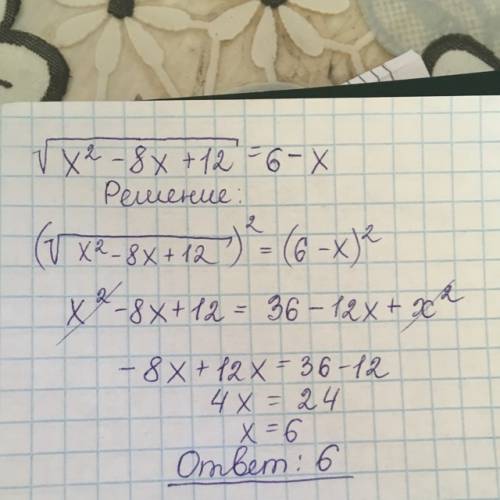 √(x² - 8x + 12) = 6 - x
Решение:
(√(x² - 8x + 12))² = (6 - x)²
x² - 8x + 12 = 36 - 12x + x²
- 8x + 12x = 36 - 12
4x = 24
x = 6
Ответ: 6